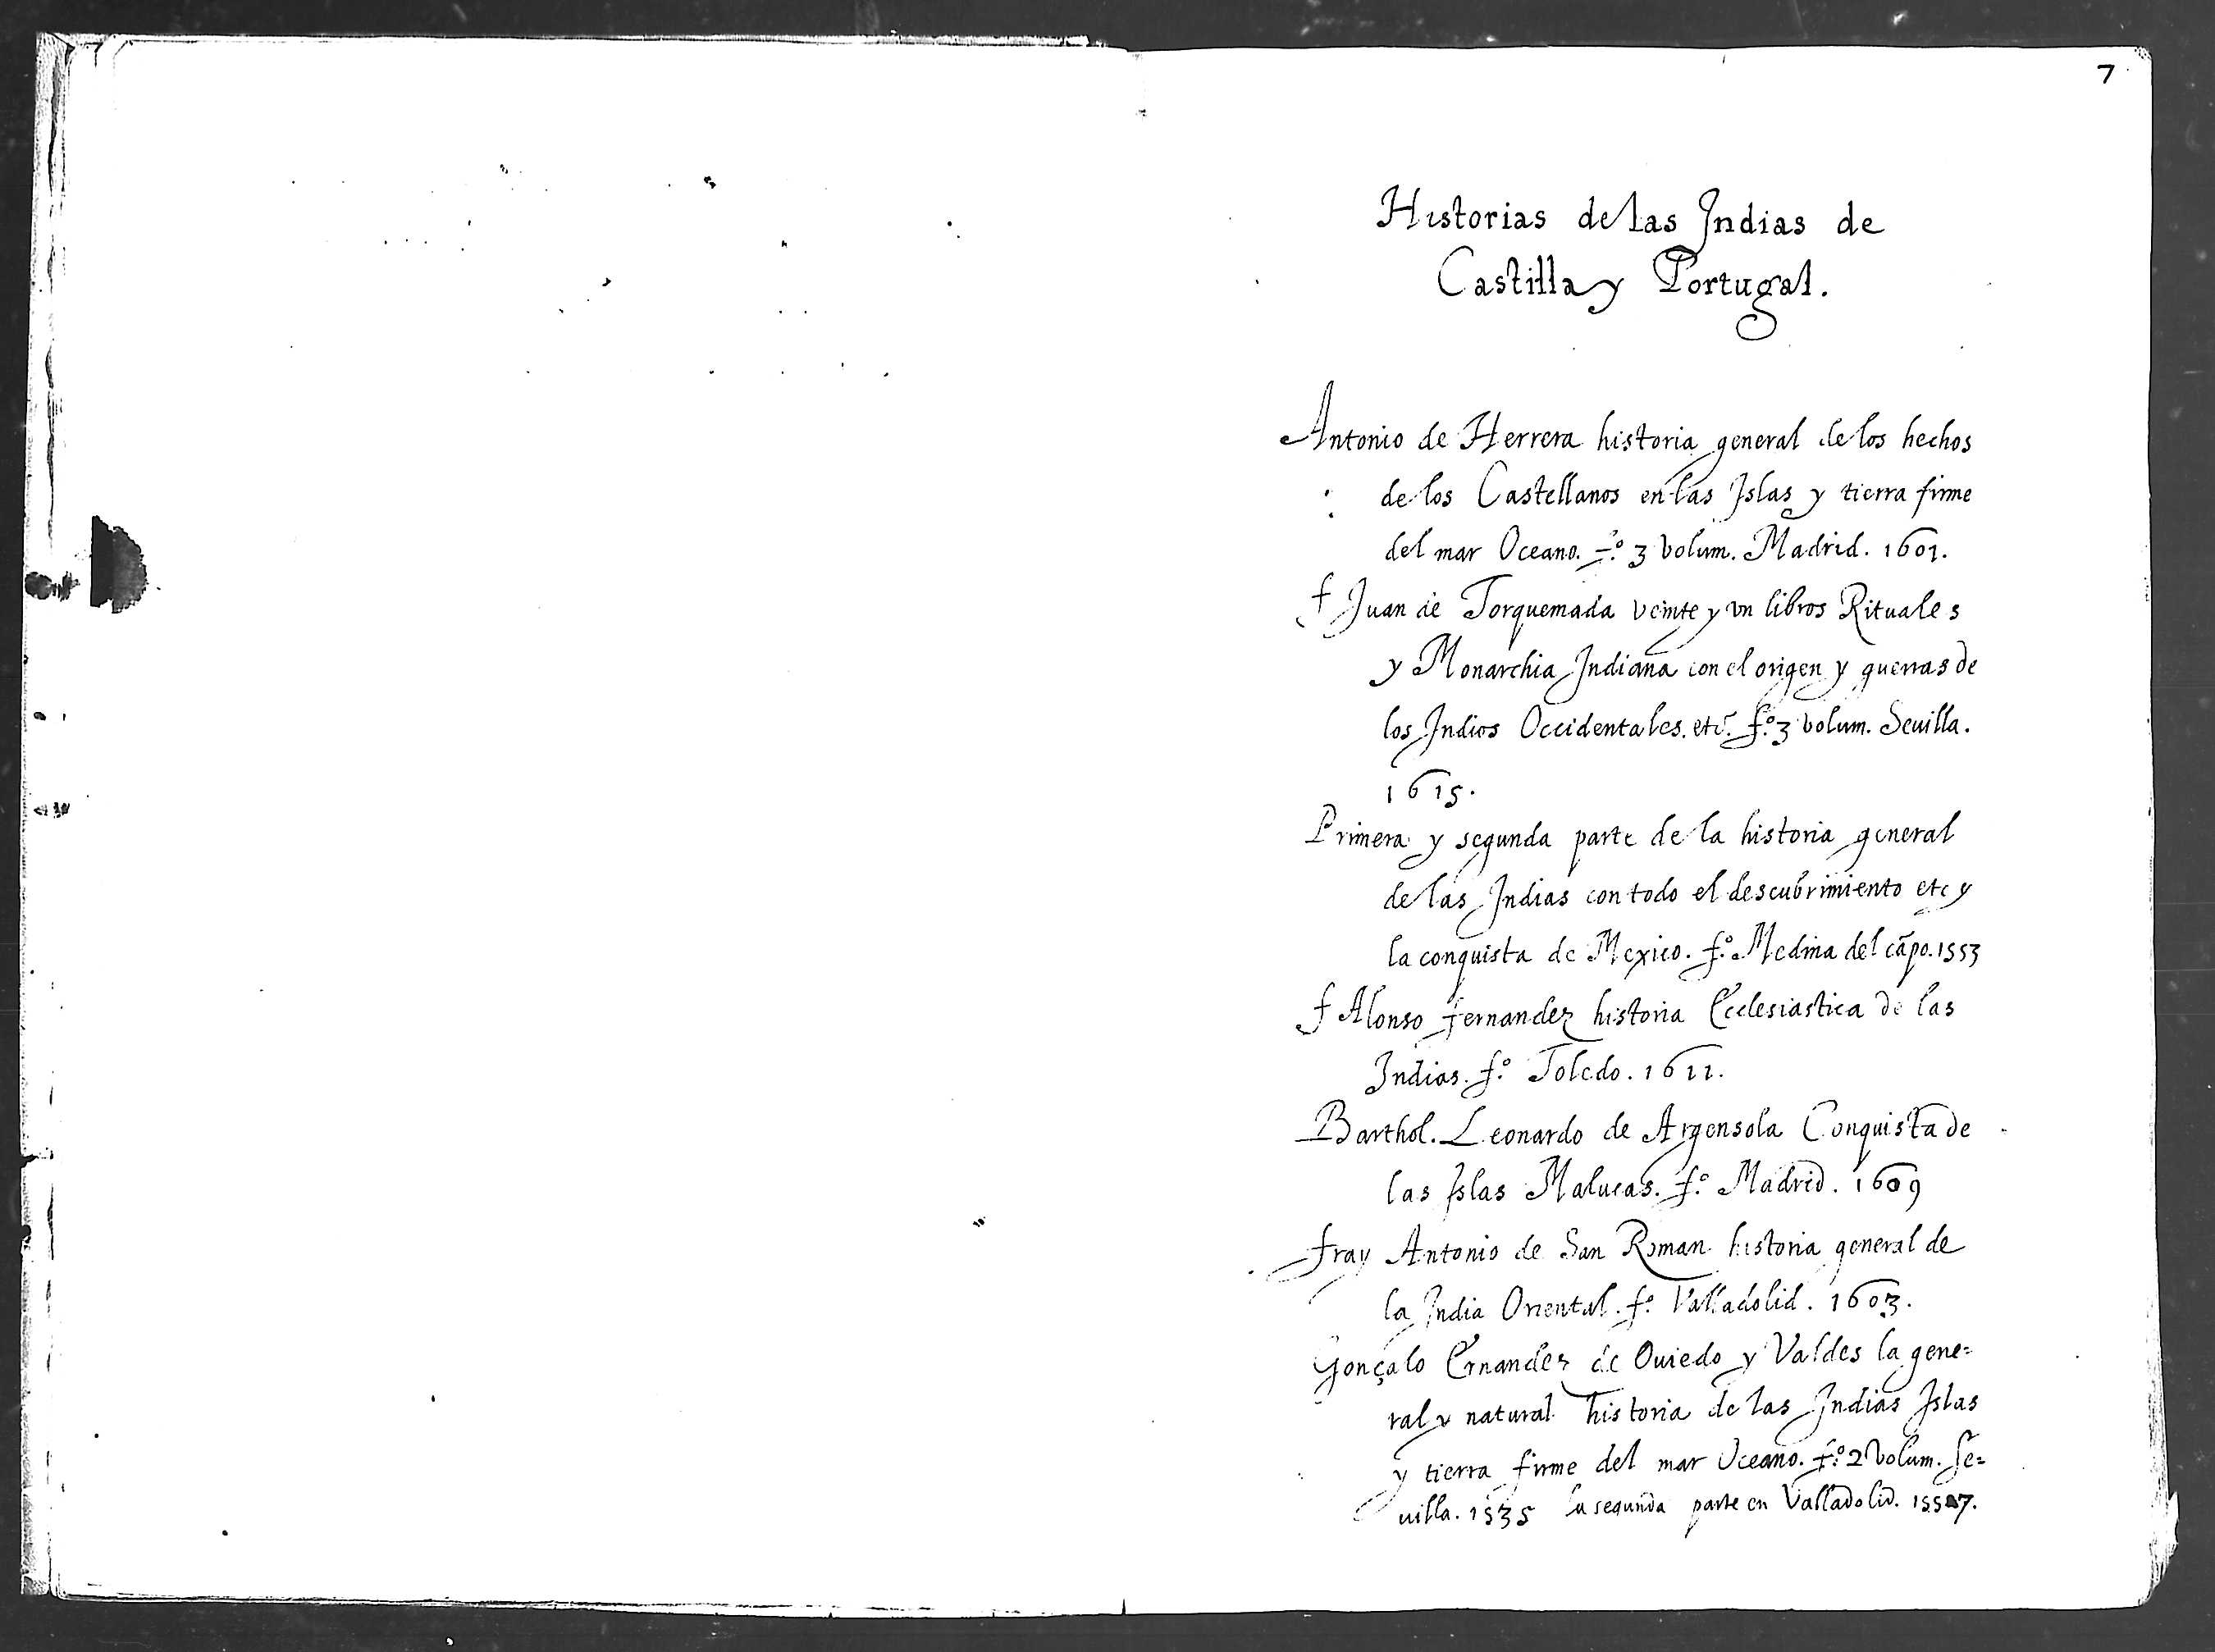 7
Historias de las Indias de
Castilla y Portugal.
Antonio de Herrera historia general de los hechos
de los Castellanos en las Islas y tierra firme
del mar Oceano. f.º 3 volum. Madrid. 1601.
f Juan de Torquemada veinte y vn libros Rituales
y Monarchia Indiana con el origen y guerras de
los Indios Occidentales. etc. f.º 3 volum. Seuilla.
1615.
Primera y segunda parte de la historia general
de las Indias con todo el descubrimiento etc y
la conquista de Mexico. f.º Medina del cãpo. 1553
f Alonso fernandez historia Ecclesiastica de las
Indias. f.º Toledo. 1611.
Barthol. Leonardo de Argensola Conquista de
las Islas Malucas. f.º Madrid. 1609
fray Antonio de San Roman historia general de
la India Oriental. f.º Valladolid. 1603.
Gonçalo Ernandez de Ouiedo y Valdes la gene=
ral y natural historia de las Indias Islas
y tierra firme del mar Oceano. f.º 2 volum. Se=
uilla. 1535 la segunda parte en Valladolid. 1557.